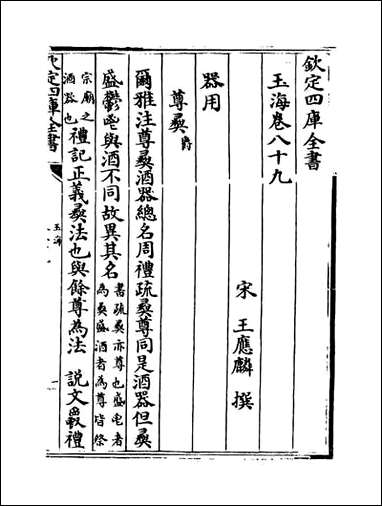 欽定四庫全書
玉海卷八十九
宋 王應麟 撰
器用
尊彞爵
爾雅注尊彞酒器總名周禮疏彞尊同是酒器但彞
盛鬱鬯與酒不同故異其名
書疏彞亦尊也盛鬯者
為彞盛酒者為尊皆祭
宗廟之
酒器也
禮記正義彞法也與餘尊為法 說文爵禮
定四庫全書
玉海
一